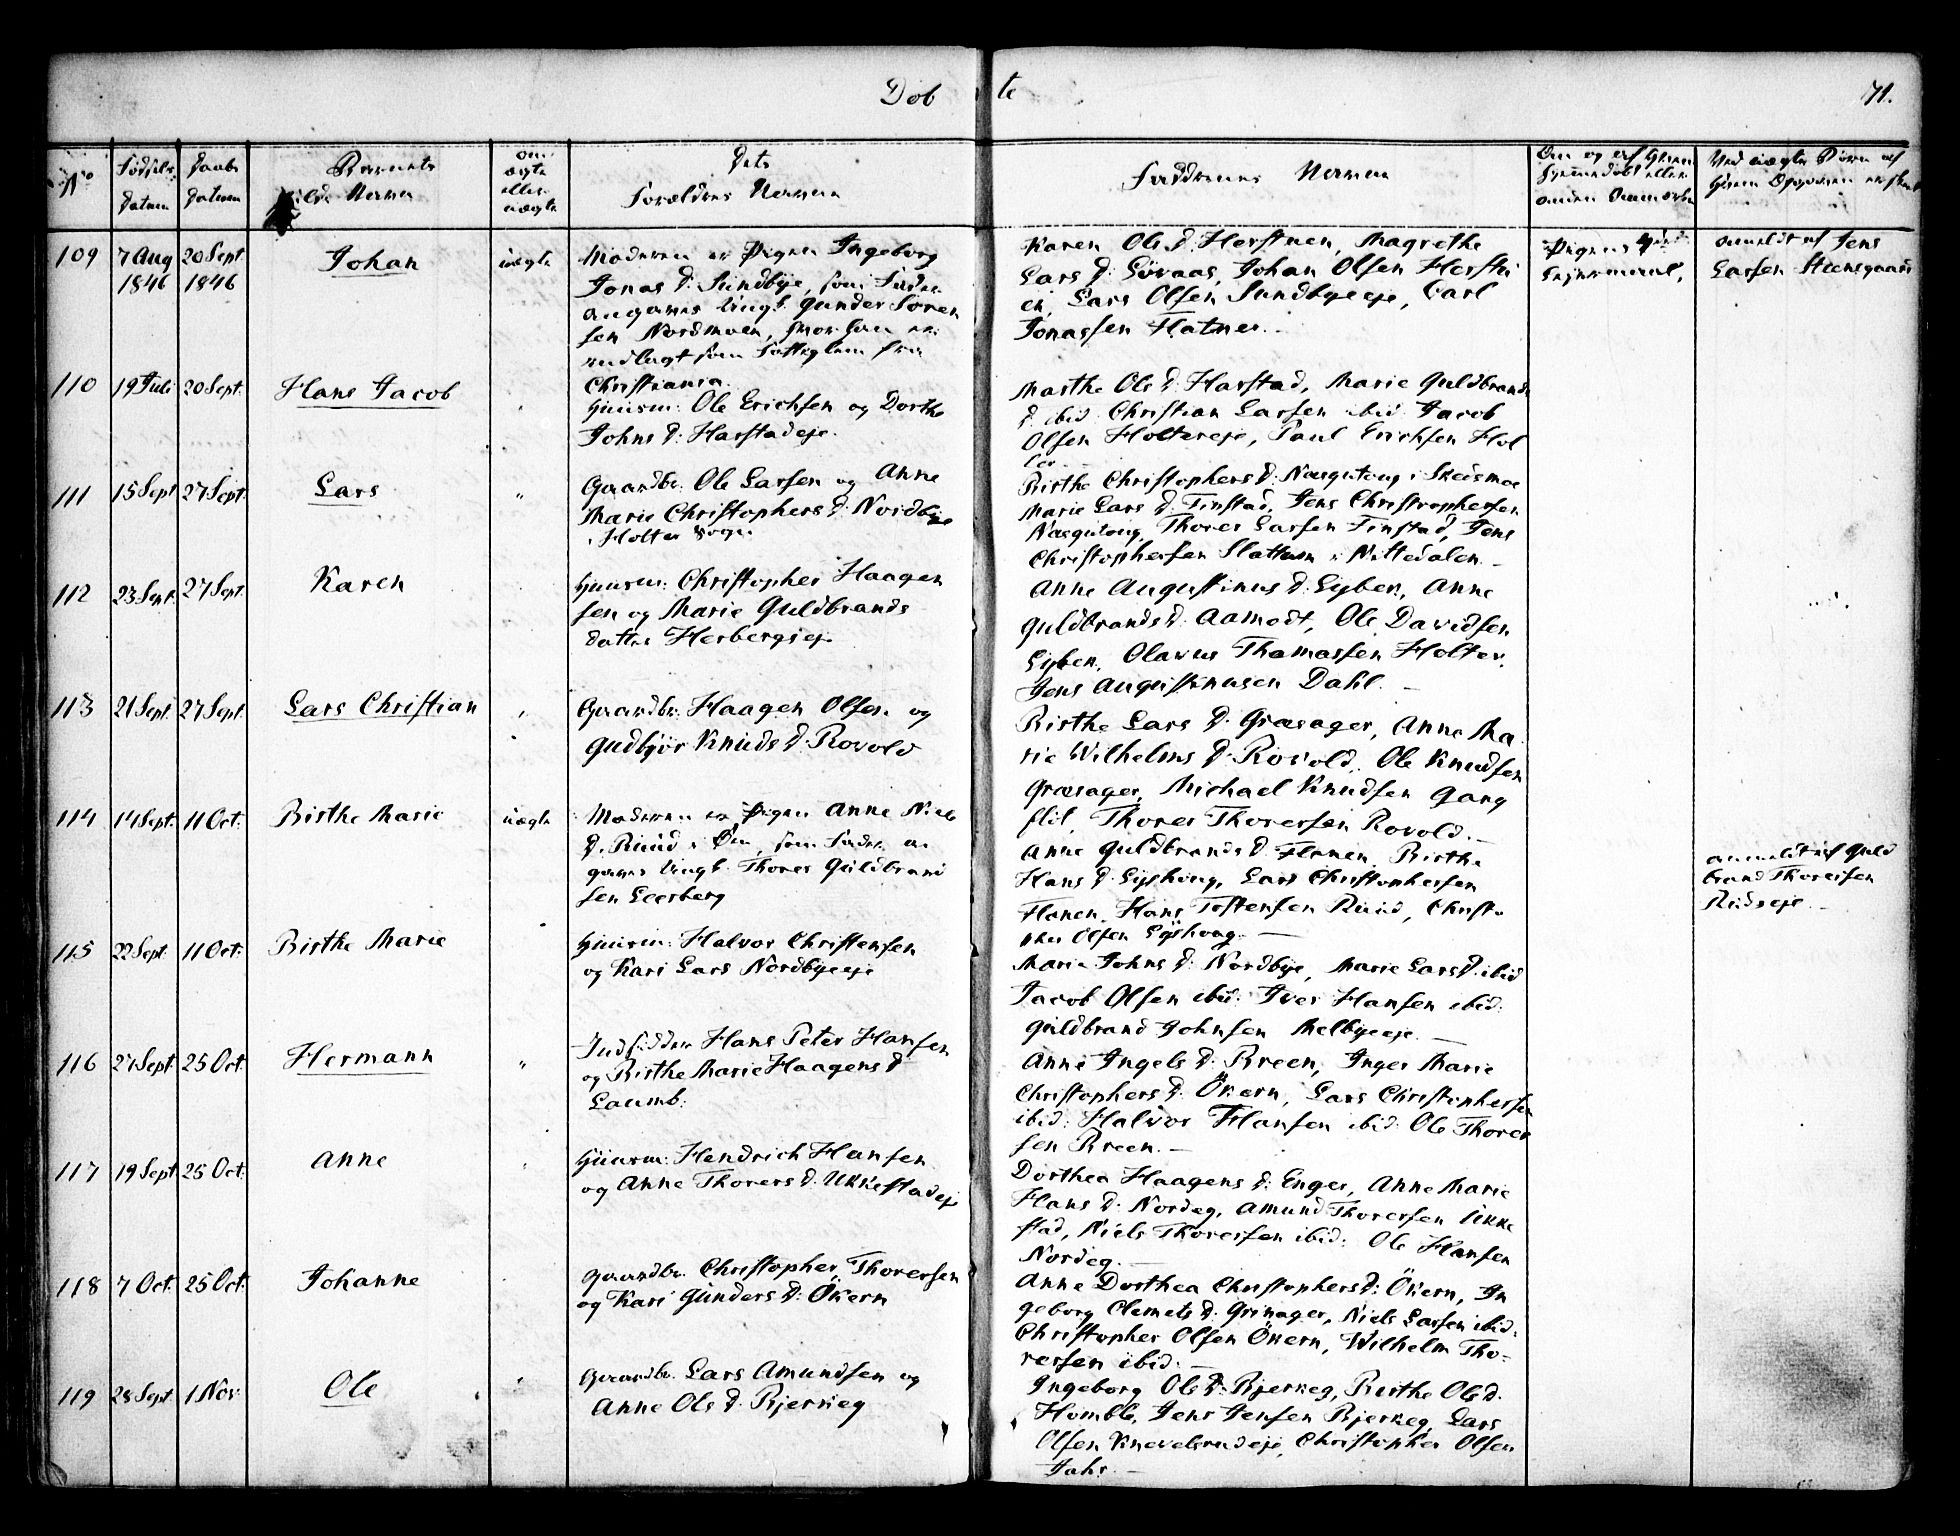 Døb te 71.
No
Fødsels Datum
Daabs Datum
Barnets fulde Navn
Om ægte eller uægte
Dets
Forældres Navne
Faddernes Navne
109 7 Aug 1846 20 Sept 1846 Johan uægte
Moderen er Pigen Ingeborg
Jonas D: Sundbye, som Fader
angaves Ungk. Gunder Søren
sen Nordmoen, hvor han er
indlagt som fra
Christiania.
Karen Ols D: Herstuen, Magrethe
Lars D: Løvaas, Johan Olsen Herstu
en, Lars Olsen Sundbyeeje, Carl
Jonassen Flatner.
Pigens
Leiermaal,
anmeldt af Jens
Larsen Steensgaard
110 19 Juli 20 Sept. Hans Jacob
Huusm: Ole Erichsen og Dorthe
Johns D: Harstadeje.
Marthe Ols D: Harstad, Marie Guldbrands
D. ibid. Christian Larsen ibid. Jacob
Olsen Holtereje, Paul Erichsen Hol
ter.
111 15 Sept 27 Sept. Lars "
Gaardbr: Ole Larsen og Anne
Marie Christophers D: Nordbye
i Holter Sogn.
Birthe Christophers D: i Skedsmoe
Marie Lars D: Finstad, Jens Christophersen
Thorer Larsen Finstad, Jens
Christophersen Slattum i Nittedalen.
112 23 Sept. 27 Sept. Karen
Huusm: Christopher Haagen
sen og Marie Guldbrands
datter Herbergseje
Anne Augustinus D: Lyber, Anne
Guldbrands D: Aamodt, Ole Davidsen
Lyber, Olavus Thomassen Holter,
Jens Augustinusen Dahl.
113 21 Sept. 27 Sept. Lars Christian "
Gaardbr: Haagen Olsen og
Gudbjør Knuds D: Rovold
Birthe Lars D: Græsager, Anne Ma
rie Wilhelms D: Rovold, Ole Knudsen
Græsager, Michael Knudsen Gang
flit, Thorer Thorersen Rovold.
114 14 Sept. 11 Oct: Birthe Marie uægte
Moderen er Pigen Anne Niels
D. Ruud i Øen, som Fader an
gaves Ungk. Thorer Guldbrand
sen Leerberg
Anne Guldbrands D: Flanen, Birthe
Hans D: Lyshoug, Lars Christophersen
Flanen, Hans Tostensen Ruud, Christo
pher Olsen Lyshoug.
anmeldt af Guld
brand Thorersen
Rudseje
115 22 Sept 11 Oct: Birthe Marie
Huusm: Halvor Christensen
og Kari Lars Nordbyeeje
Marie Johns D: Nordbye, Marie Lars D: ibid
Jacob Olsen ibid: Iver Hansen ibid:
Guldbrand Johnsen Melbyeeje.
116 27 Sept. 25 Oct. Hermann "
Indsidder Hans Peter Hansen
og Birthe Marie Haagens D
Laumb.
Anne Ingels D: Breen, Inger Marie
Christophers D: Økern, Lars Christophersen
ibid: Halvor Hansen ibid: Ole Thorer
sen Breen.
117 19 Sept 25 Oct: Anne
Huusm: Hendrich Hansen
og Anne Thorers D: Ukkestadeje
Dorthea Haagens D: Enger, Anne Marie
Hans D: Nordeg, Amund Thorersen Ukke
stad, Niels Thorersen ibid: Ole Hansen
Nordeg.
118 7 Oct: 25 Oct: Johanne
Gaardbr. Christopher Thorersen
og Kari Gunders D: Økern
Anne Dorthea Christophers D: Økern, In
geborg Clemets D: Grinager, Niels Larsen ibid.
Christopher Olsen Økern, Wilhelm Tho-
rersen ibid.
119 28 Sept. 1 Nov. Ole
Gaardbr. Lars Amundsen og
Anne Ols D: Bjerkeg
Ingeborg Ols D: Bjerkeg, Birthe Ols D.
Homble, Jens Jensen Bjerkeg, Lars
Olsen Knevelsrudeje, Christopher Olsen
Jahr.